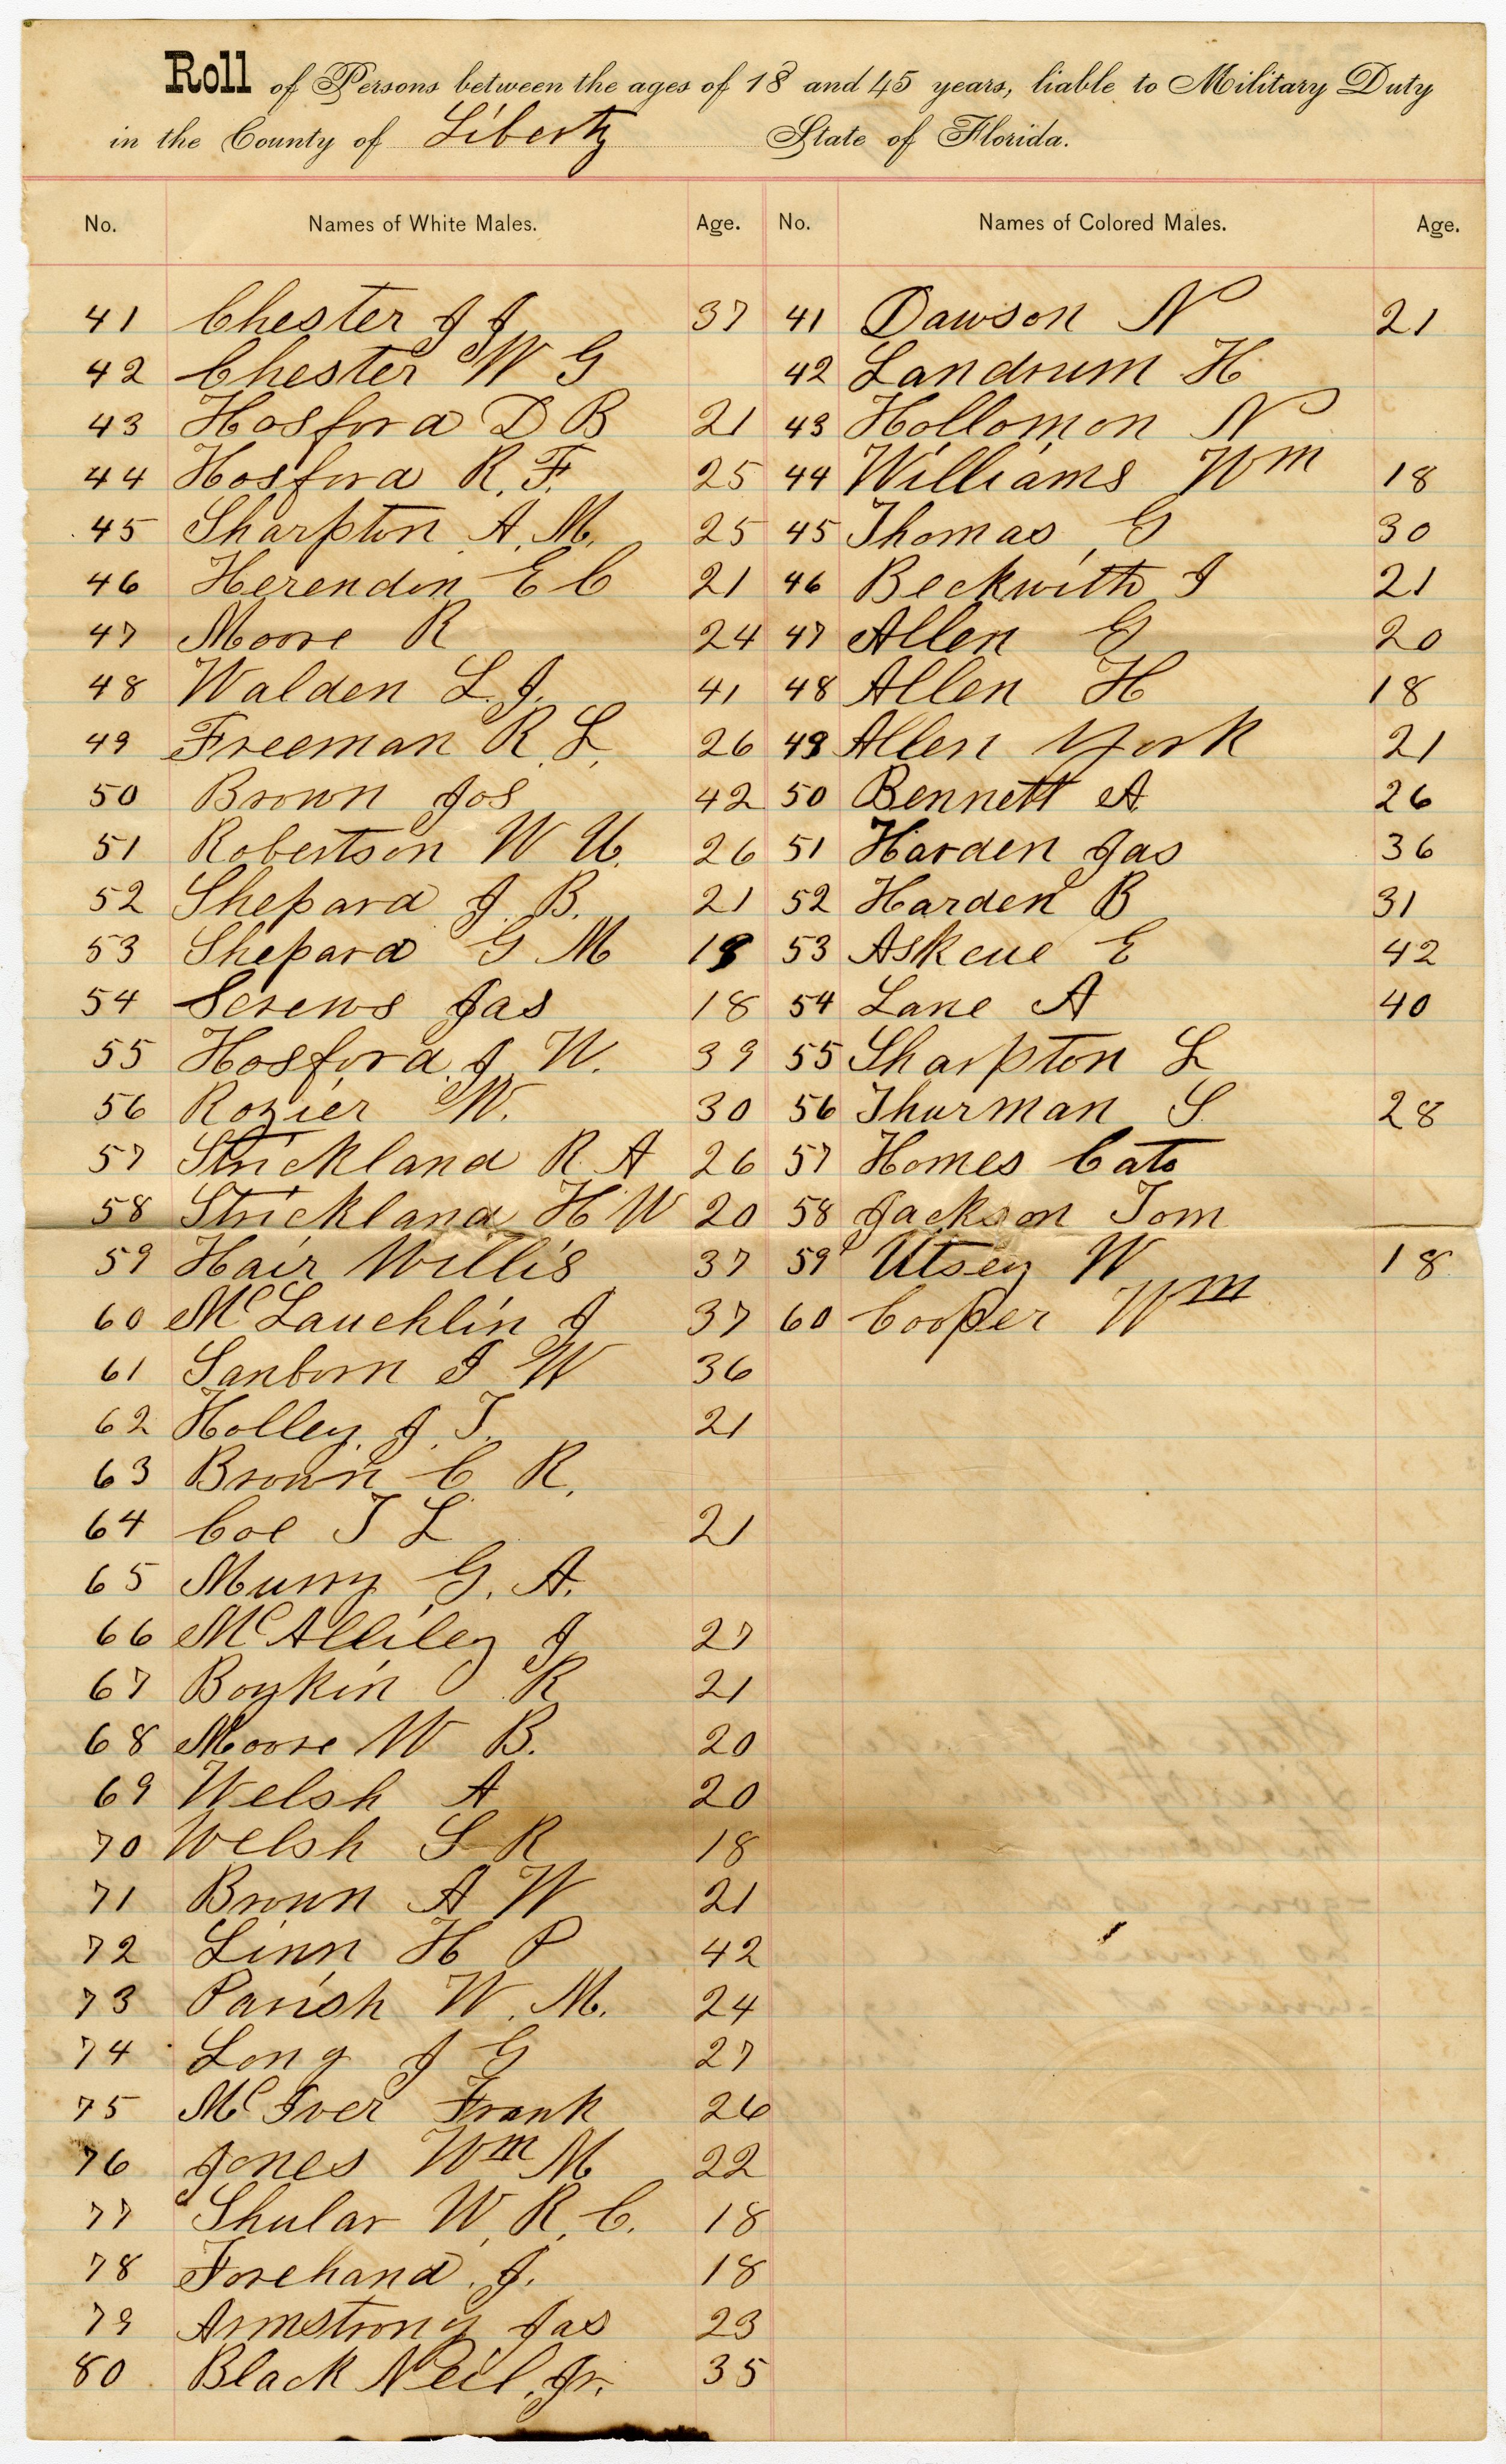 Roll of Persons between the ages of 18 and 45 years, liable to Military Duty
in the County of Liberty State of Florida.
No. Names of White Males. Age. No. Names of Colored Males. Age.
41 Chester J J 37 41 Dawson N 21
42 Chester W G 42 Landrum H
43 Hosford D B 21 43 Hollomon N
44 Hosford R. F. 25 44 Williams Wm 18
45 Sharpton A. M. 25 45 Thomas G 30
46 Herendon E C 21 46 Beckwith J 21
47 Moore R 24 47 Allen G 20
48 Walden L. J. 41 48 Allen H 18
49 Freeman R. L. 26 49 Allen York 21
50 Brown Jos 42 50 Bennett A 26
51 Robertson W U. 26 51 Harden Jas 36
52 Shepard J. B. 21 52 Harden B 31
53 Shepard G M 18 53 Askeue E 42
54 Screws Jas 18 54 Lane A 40
55 Hosford J. W. 39 55 Sharpton L
56 Rozier W. 30 56 Thurman S 28
57 Strickland R. A 26 57 Homes Cato
58 Strickland H W 20 58 Jackson Tom
59 Hair Willis 37 59 Utsey W 18
60 McLauchlin J 37 60 Cooper Wm
61 Sanborn I W 36
62 Holley J. T. 21
63 Brown C R.
64 Coe T L 21
65 Murry G. A.
66 McAlliley J 27
67 Boykin R 21
68 Moore W B. 20
69 Welsh A 20
70 Welsh S R 18
71 Brown A W 21
72 Linn H P 42
73 Parish W. M. 24
74 Long J G 27
75 McIver Frank 26
76 Jones Wm M 22
77 Shular W. R. C. 18
78 Forehand J. 18
79 Armstrong Jas 23
80 Black Neil Jr. 35